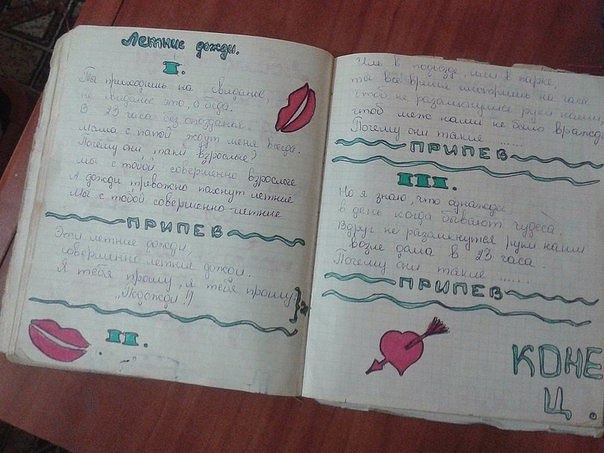 Летние дожди.
I.
Ты приходишь на свидание,
не свидание это, а беда.
В 23 часа без опоздания
Мама с папой ждут меня всегда.
Почему они такие взрослые?
мы с тобой, совершенно взрослые
А дожди тревожно пахнут летние
Мы с тобой совершенно-летние
ПРИПЕВ
Эти летние дожди,
совершенно летние дожди.
Я тебя прошу, я тебя прошу
"Подожди!"
II
Или в подъезде, или в парке,
ты всё время смотришь на часы
чтоб не разомкнулись руки наши,
чтоб меж нами не было вражды
Почему они такие ......
ПРИПЕВ
III.
Но я знаю, что однажды
в день когда бывают чудеса
Вдруг не разомкнутся руки наши
возле дома в 23 часа
Почему они такие ......
ПРИПЕВ
КОНЕ
Ц.